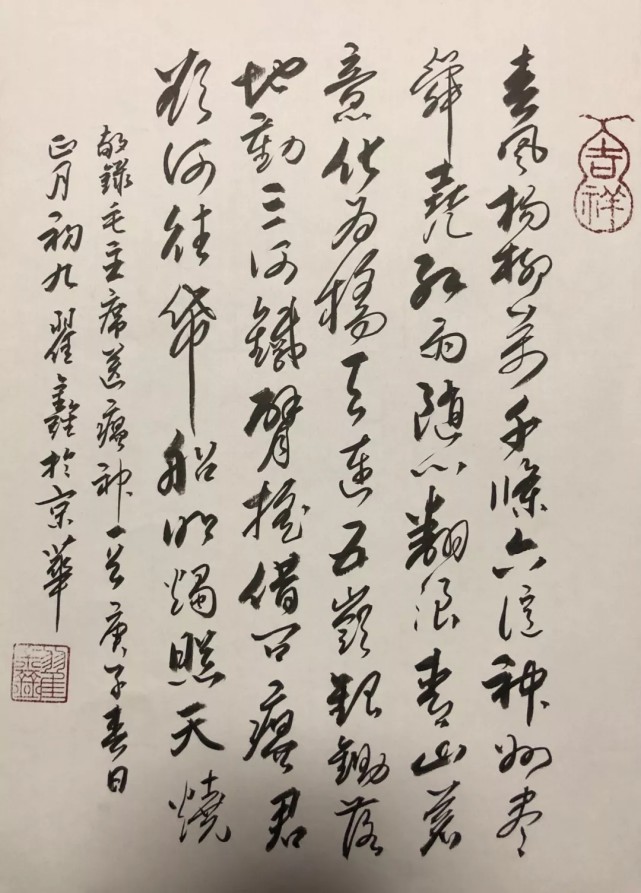 吉祥
春风杨柳萬千條六億神州尽
舜堯红雨随心翻浪青山著
意化为橋天連五嶺銀鋤落
地動三河鐵臂摇借问瘟君
欲何往帋船明燭照天燒
敬錄毛主席送瘟神一首庚子春日
正月初九翟鑫於京華